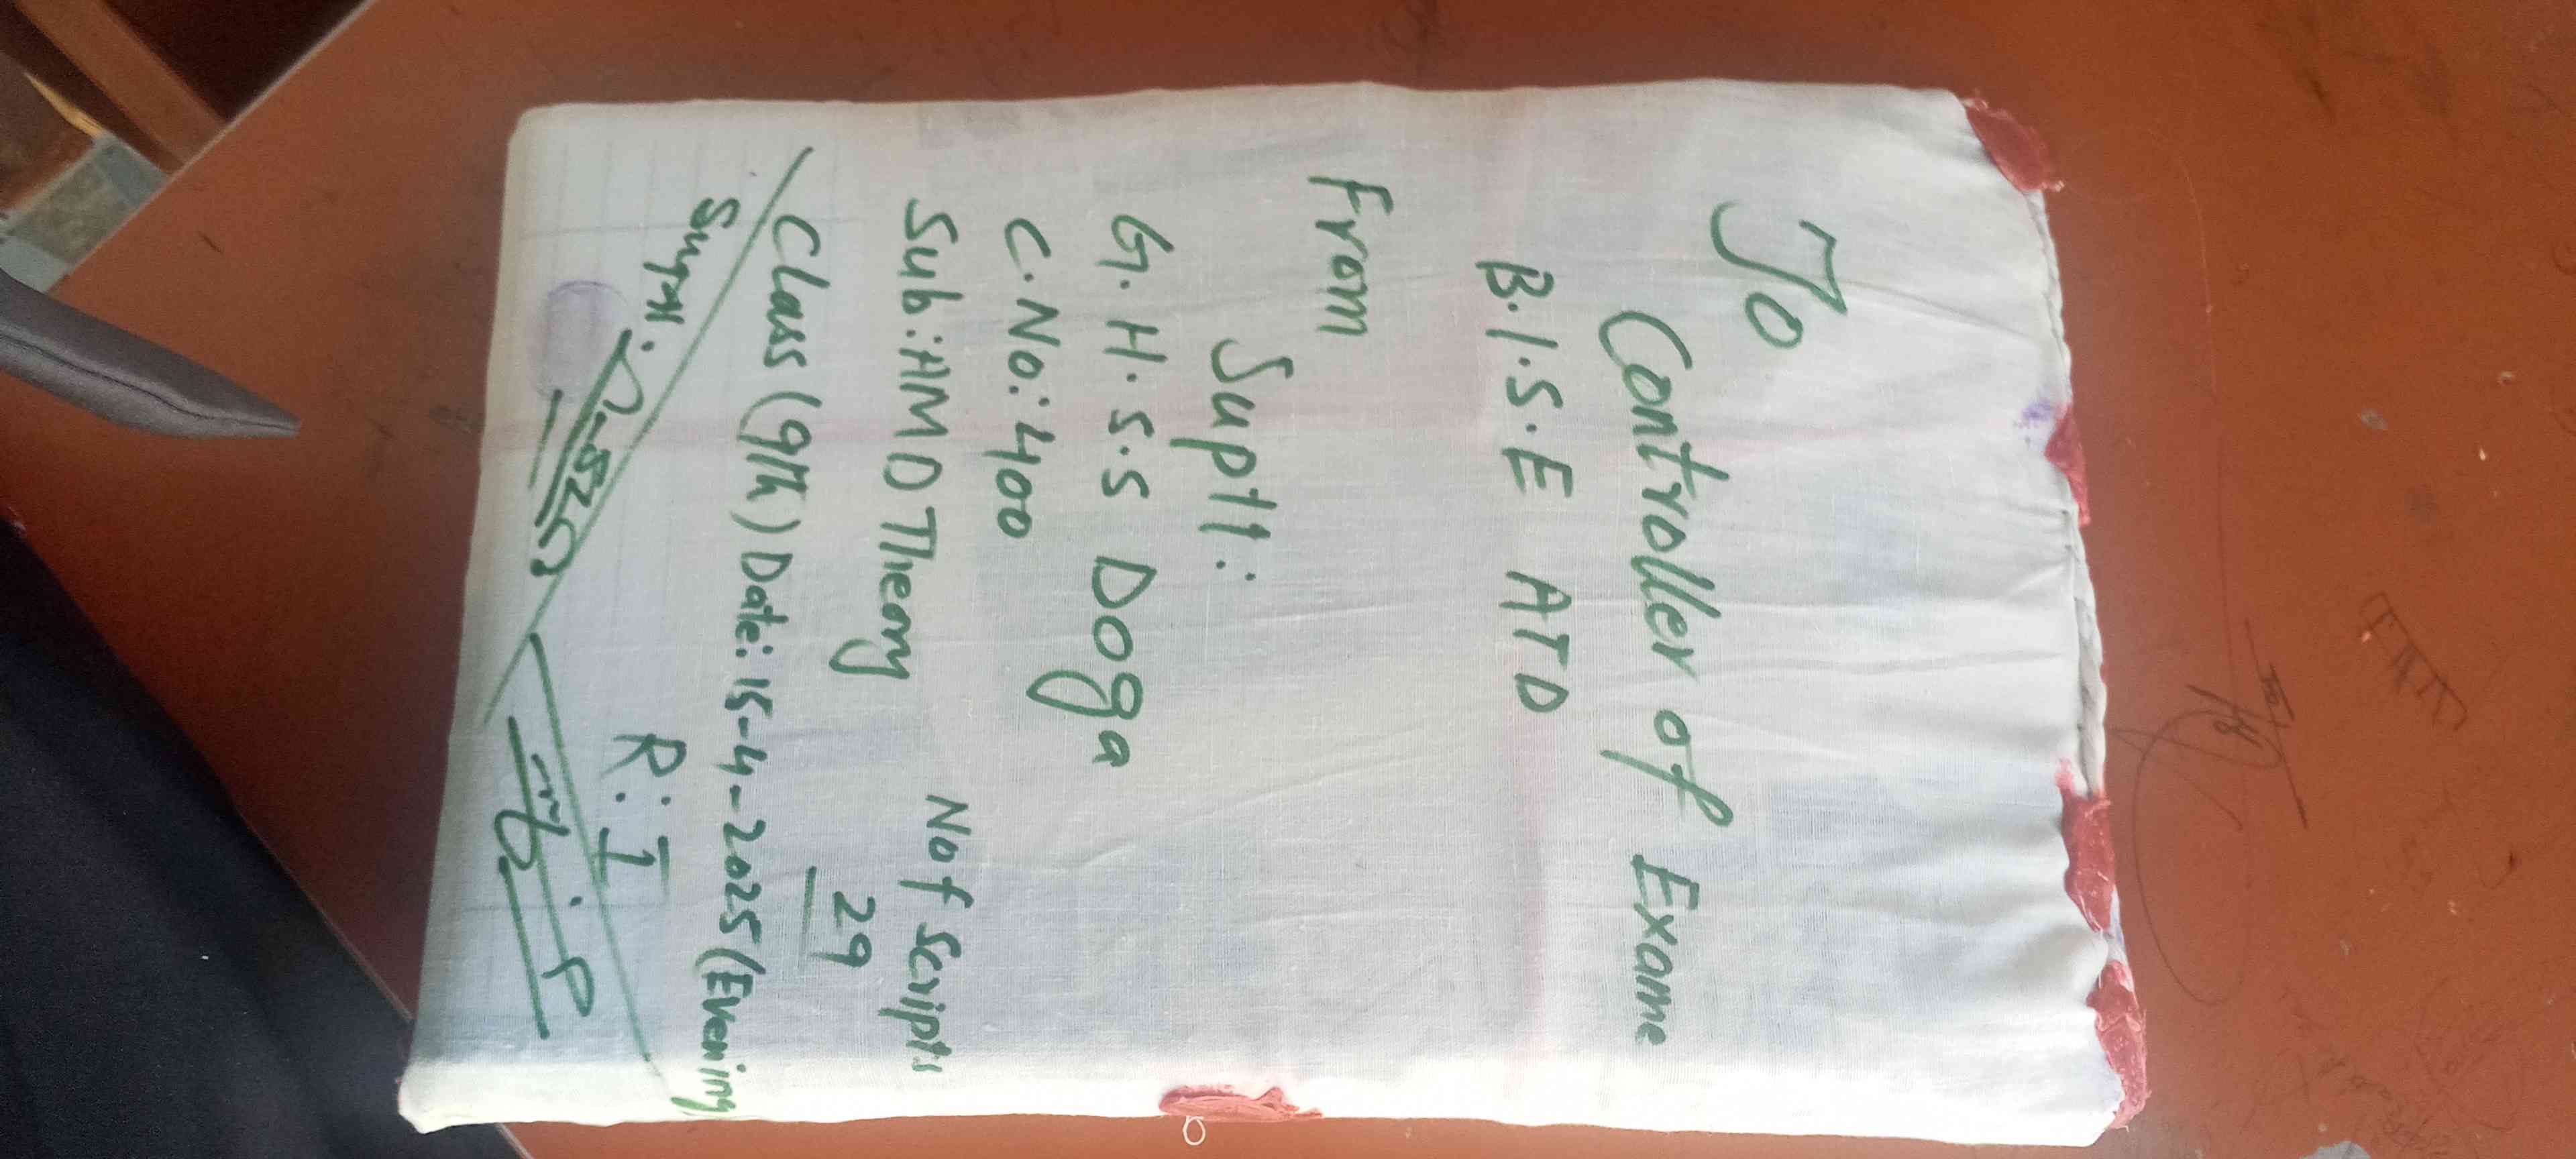 To
Controller of Exame
B.I.S.E ATD
From
Suptt:
G.H.S.S Doga
C.No: 400
Sub: HMD Theory Nof Scripts
29
Class (9th) Date: 15-4-2025 (Evening
R: I